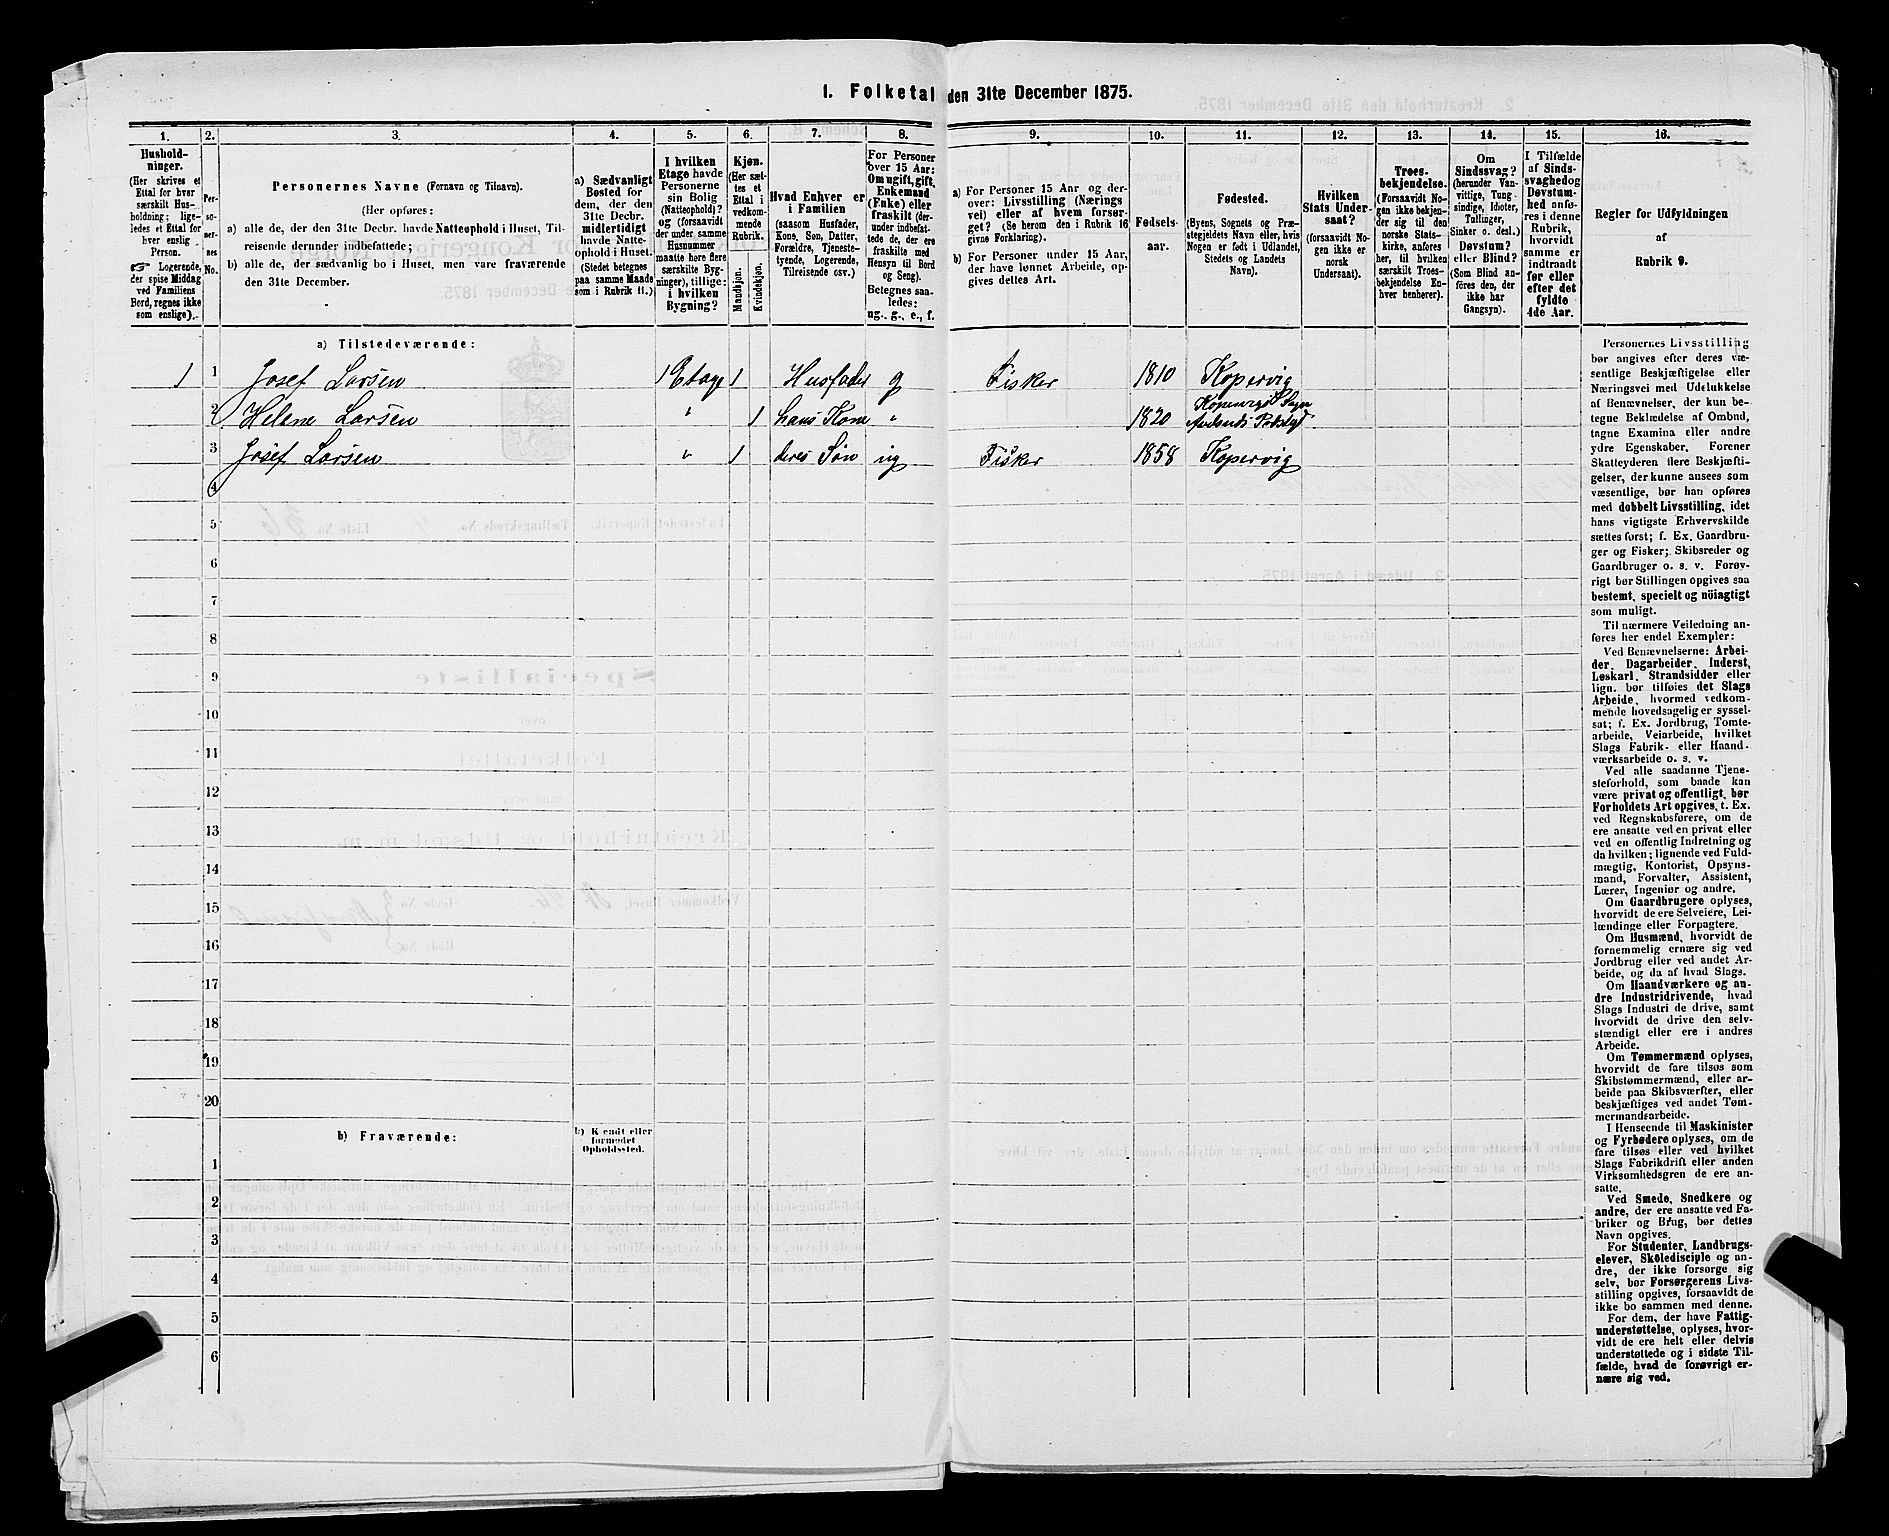 1. Folketal den 31te December 1875.
1.
Hushold-
ninger.
(Her skrives et
Ettal for hver
særskilt Hus-
holdning; lige-
ledes et Ettal for
hver enslig
Person.
☞ Logerende,
der spise Middag
ved Familiens
Bord, regnes ikke
som enslige).
2.
Per-
so-
ner-
nes
No.
3.
Personernes Navne (Fornavn og Tilnavn).
(Her opføres:
a) alle de, der den 31te Decbr. havde Natteophold i Huset, Til-
reisende derunder indbefattede;
b) alle de, der sædvanlig bo i Huset, men vare fraværende
den 31te December.
4.
a) Sædvanligt
Bosted for
dem, der den
31te Decbr.
midlertidigt
havde Natte-
ophold i Huset.
(Stedet betegnes
paa samme Maade
som i Rubrik 11.)
5.
I hvilken
Etage havde
Personerne
sin Bolig
(Natteophold)?
og (forsaavidt
der under samme
Husnummer
maatte høre flere
særskilte Byg-
ninger), tillige:
i hvilken
Bygning?
6.
Kjøn.
(Her sæt-
tes et
Ettal i
vedkom-
mende
Rubrik.
Mandkjøn.
Kvindekjøn.
7.
Hvad Enhver er
i Familien
(saasom Husfader,
Kone, Søn, Datter,
Forældre, Tjeneste-
tyende, Logerende,
Tilreisende osv.)
8.
For Personer
over 15 Aar:
Om ugift, gift,
Enkemand
(Enke) eller
fraskilt (der-
under indbefat-
tede de, der ere
fraskilte med
Hensyn til Bord
og Seng).
Betegnes saa-
ledes:
ug., g., e., f.
9.
a) For Personer 15 Aar og der-
over: Livsstilling (Nærings
vei) eller af hvem forsør-
get? (Se herom den i Rubrik 16
givne Forklaring).
b) For Personer under 15 Aar,
der have lønnet Arbeide, op-
gives dettes Art.
10.
Fødsels-
aar.
11.
Fødested.
(Byens, Sognets og Præ-
stegjeldets Navn eller, hvis
Nogen er født i Udlandet,
Stedets og Landets
Navn).
12.
Hvilken
Stats Under-
saat?
(forsaavidt No-
gen ikke er
norsk
Undersaat).
13.
Troes-
bekjendelse.
(Forsaavidt No-
gen ikke bekjen-
der sig til den
norske Stats-
kirke, anføres
her, til hvilken
særskilt Troes-
bekjendelse En-
hver henhører).
14.
Om
Sindssvag?
(herunder Van-
vittige, Tung-
sindige, Idioter,
Tullinger,
Sinker o. desl.)
Døvstum?
eller Blind?
(Som Blind an-
føres den, der
ikke har
Gangsyn).
15.
I Tilfælde
af Sinds-
svaghed og
Døvstum-
hed anfø-
res i denne
Rubrik,
hvorvidt
samme er
indtraadt
før eller
efter det
fyldte
4de Aar.
16.
Regler for Udfyldningen
af
Rubrik 9.
a) Tilstedeværende:
1 1 Josef Larsen 1 Etage 1 Husfader g Fisker 1810 Kopervig
2 Helene Larsen " 1 hans Kone " 1820 Kopervigs Sogn
Avaldsnes Præstegjd
3 Josef Larsen " 1 deres Søn ug Fisker 1858 Kopervig
4
5
6
7
8
9
10
11
12
13
14
15
16
17
18
19
20
b) Fraværende:
b) Kendt eller
formodet
Opholdssted.
1
2
3
4
5
6
Personernes Livsstilling
bør angives efter deres væ-
sentlige Beskjæftigelse eller
Næringsvei med Udelukkelse
af Benævnelser, der kun be-
tegne Beklædelse af Ombud,
tagne Examina eller andre
ydre Egenskaber. Forener
Skatteyderen flere Beskjæfti-
gelser, der kunne ansees som
væsentlige, bør han opføres
med dobbelt Livsstilling, idet
hans vigtigste Erhvervskilde
sættes først; f. Ex. Gaardbru-
ger og Fisker; Skibsreder og
Gaardbruger o. s. v. Forøv-
rigt bør Stillingen opgives saa
bestemt, specielt og nöiagtigt
som muligt.
Til nærmere Veiledning an-
føres her endel Exempler:
Ved Benævnelserne: Arbei-
der, Dagarbeider, Inderst,
Løskarl, Strandsidder eller
lign. bør tilføies det Slags
Arbeide, hvormed vedkom-
mende hovedsagelig er syssel-
sat; f. Ex. Jordbrug, Tomte-
arbeide, Veiarbeide, hvilket
Slags Fabrik- eller Haand-
værksarbeide o. s. v.
Ved alle saadanne Tjene-
steforhold, som baade kan
være privat og offentligt, bør
Forholdets Art opgives, t. Ex.
ved Regnskabsførere, om de
ere ansatte ved en privat eller
ved en offentlig Indretning og
da hvilken; lignende ved Fuld-
mægtig, Kontorist, Opsyns-
mand, Forvalter, Assistent,
Lærer, Ingeniør og andre.
Om Gaardbrugere oplyses,
hvorvidt de ere Selveiere, Lei-
lændinge eller Forpagtere.
Om Husmænd, hvorvidt de
fornemmelig ernære sig ved
Jordbrug eller ved andet Ar-
beide, og da af hvad Slags.
Om Haandværkere og an-
dre Industridrivende, hvad
Slags Industri de drive, samt
hvorvidt de drive den selv-
stændigt eller ere i andres
Arbeide.
Om Tømmermænd oplyses,
hvorvidt de fare tilsøs som
Skibstømmermænd, eller ar-
beide paa Skibsværfter, eller
beskjæftiges ved andet Tøm-
mermandsarbeide.
I Henseende til Maskinister
og Fyrbødere oplyses, om de
fare tilsøs eller ved hvilket
Slags Fabrikdrift eller anden
Virksomhedsgren de ere an-
satte.
Ved Smede, Snedkere og
andre, der ere ansatte ved Fa-
briker og Brug, bør dettes
Navn opgives.
For Studenter, Landbrugs-
elever, Skoledisciple og an-
dre, der ikke forsørge sig
selv, bør Forsørgerens Livs-
stilling opgives, forsaavidt de
ikke bo sammen med denne.
For dem, der have Fattig-
understøttelse, oplyses, hvor-
vidt de ere helt eller delvis
understøttede og i sidste Til-
fælde, hvad de forøvrigt er-
nære sig ved.